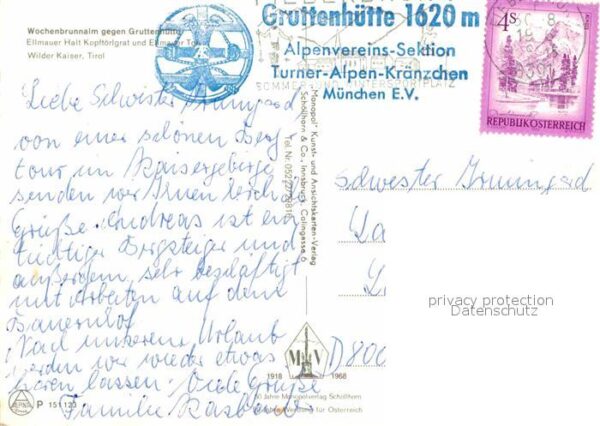 Wochenbrunnalm gegen Gruttenhütte
Ellmauer Halt Kopftörlgrat und Ellmauer Tor
Wilder Kaiser, Tirol
Gruttenhütte 1620 m
Alpenvereins-Sektion
Turner-Alpen-Kränzchen
München E.V.
4s
REPUBLIK ÖSTERREICH
Liebe Schwester Irmingard
von einer schönen Berg
tour im Kaisergebirge
senden wir Ihnen herzl.
Grüße. Andreas ist ein
tüchtiger Bergsteiger und
außerdem sehr beschäftigt
mit Arbeiten auf dem
Bauernhof.
Nach unserem Urlaub
werden wir wieder etwas
hören lassen. Viele Grüße
Familie
Monopol- Kunst- und Ansichtskarten-Verlag
Schöllhorn & Co., Innsbruck, Colingasse 6
Schwester Irmingard
La
L
privacy protection
Datenschutz
D 800
M V
1918 1968
50 Jahre Monopolverlag Schöllhorn
Werbung für Österreich
P 151123